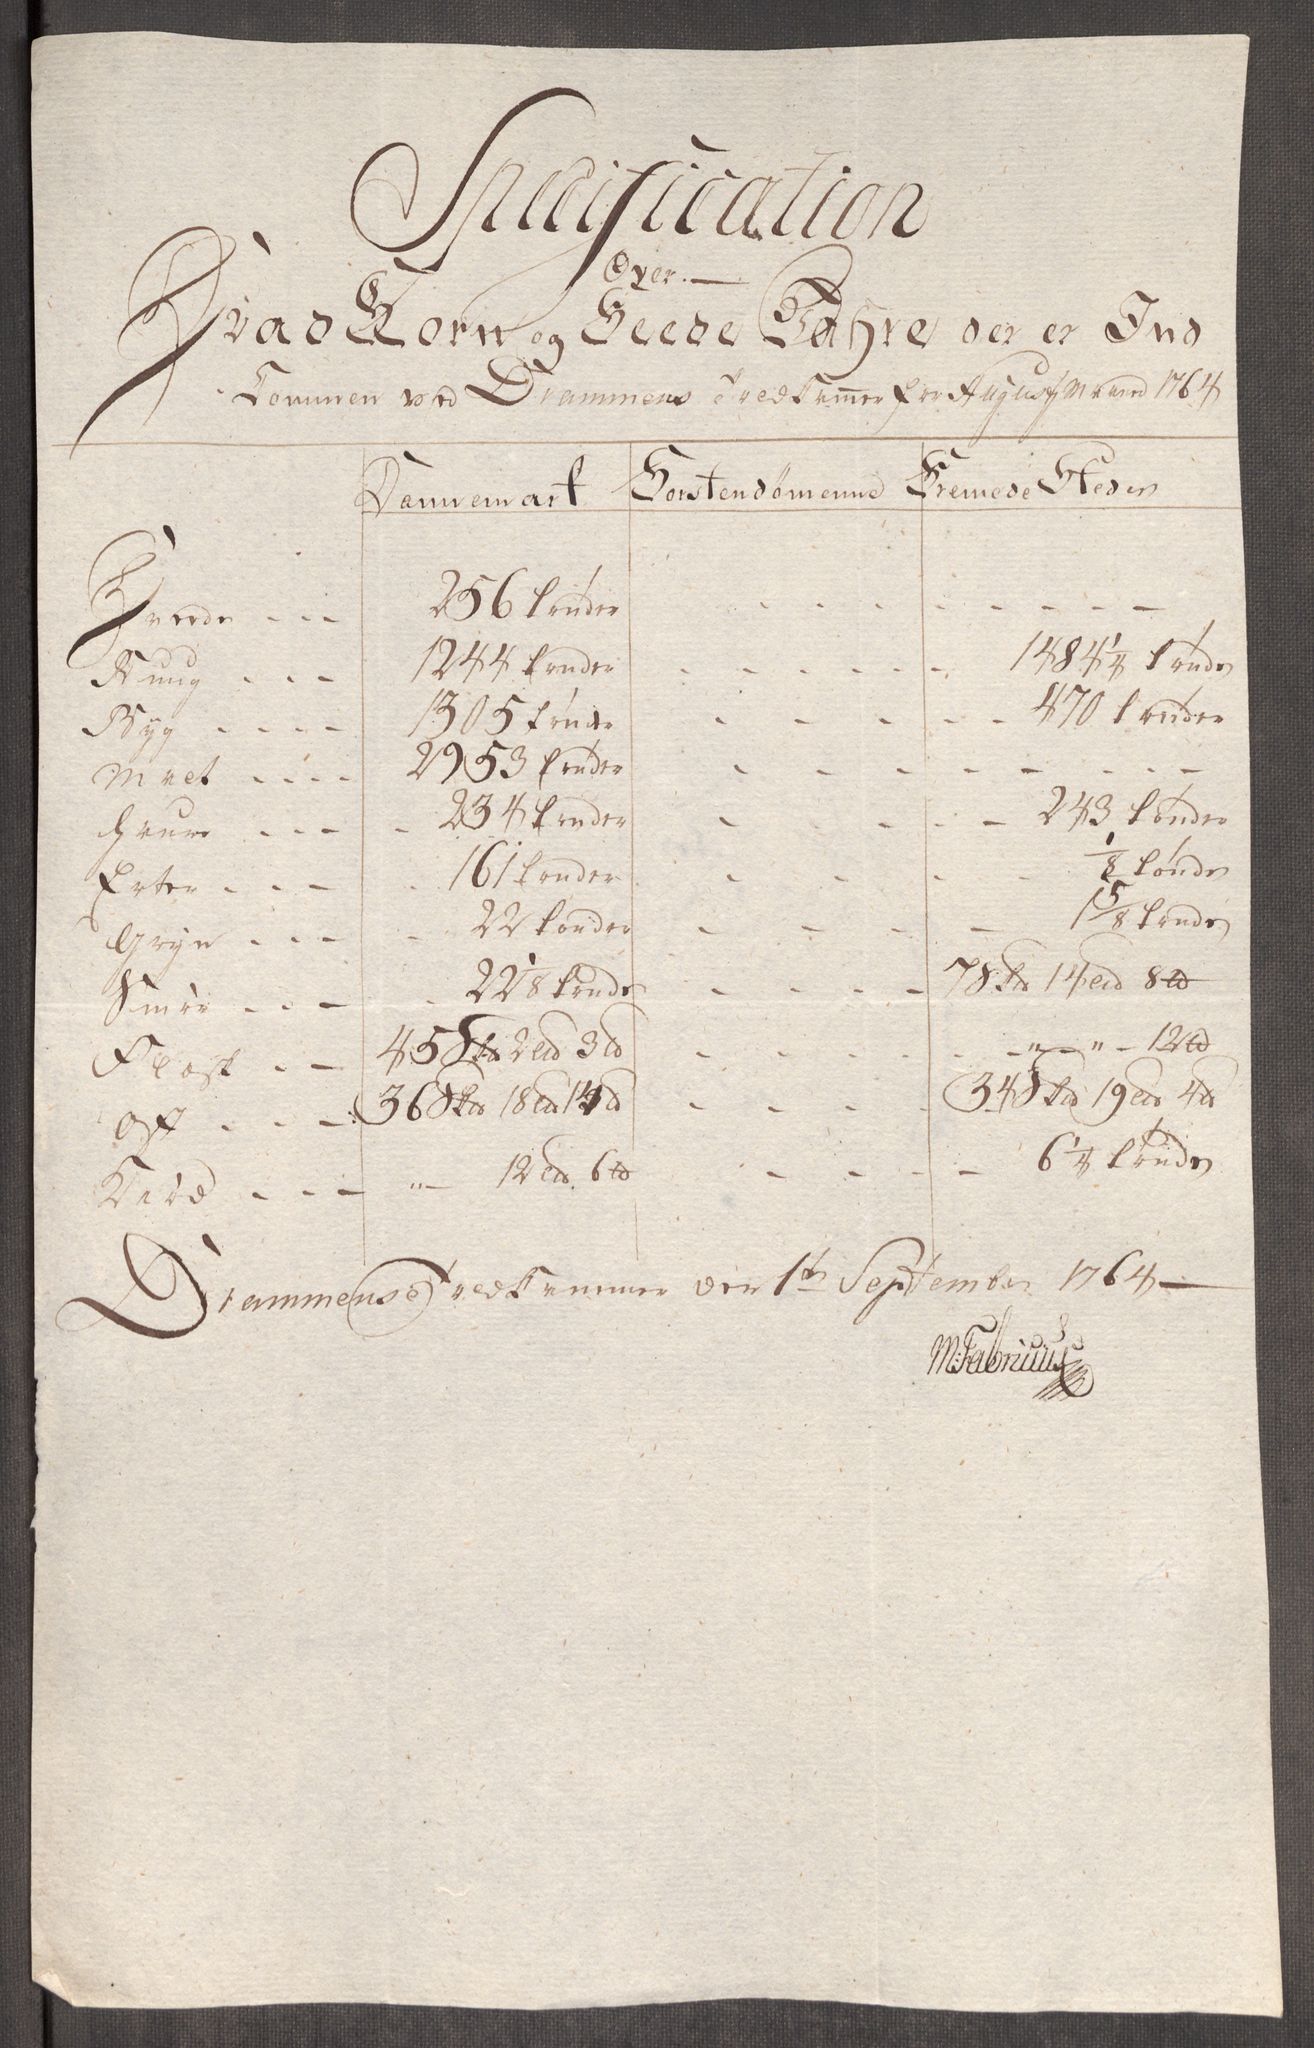 Specification
Over
Hvad Korn og Feede Vahre der er Ind
Kommen ved Drammens Tredkammer for Augusty Maaned 1764
Dannemark Forstendömenne Fremede Steder
Hvede - - - 256 tönder - - - - - - - -
Rug - - - 1244 tönder - - - - - 1484 1/4 tönder
Byg - - - - 1305 tönder - - - - - 470 tönder
Malt - - - - 2953 tönder - - - - - - - -
Havre - - - - 234 tönder - - - - - 243 tönder
Erter - - - - 161 tönder - - - - 1/8 tönde
Gryn - - - - 22 tönder - - - - 1 5/8 tönde
Smör - - - - 22 1/8 tönde - - - - 78 14 8
Flesk - - 45 2 3 - - - - - „ - „ - 12
Ost - - - 36 18 14 - - - - 34 19 4
Kiöd - - - - „ - 12 6 - - - - 6 1/4 tönde
Drammens Tredkammer den 1te September 1764
M: Fabricius